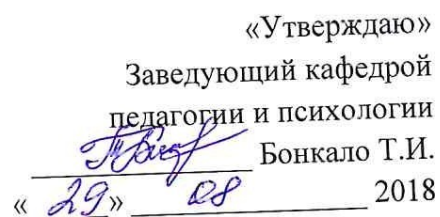 «Утверждаю»
Заведующий кафедрой
педагогии и психологии
Бонкало Т.И.
« 29» 08 2018